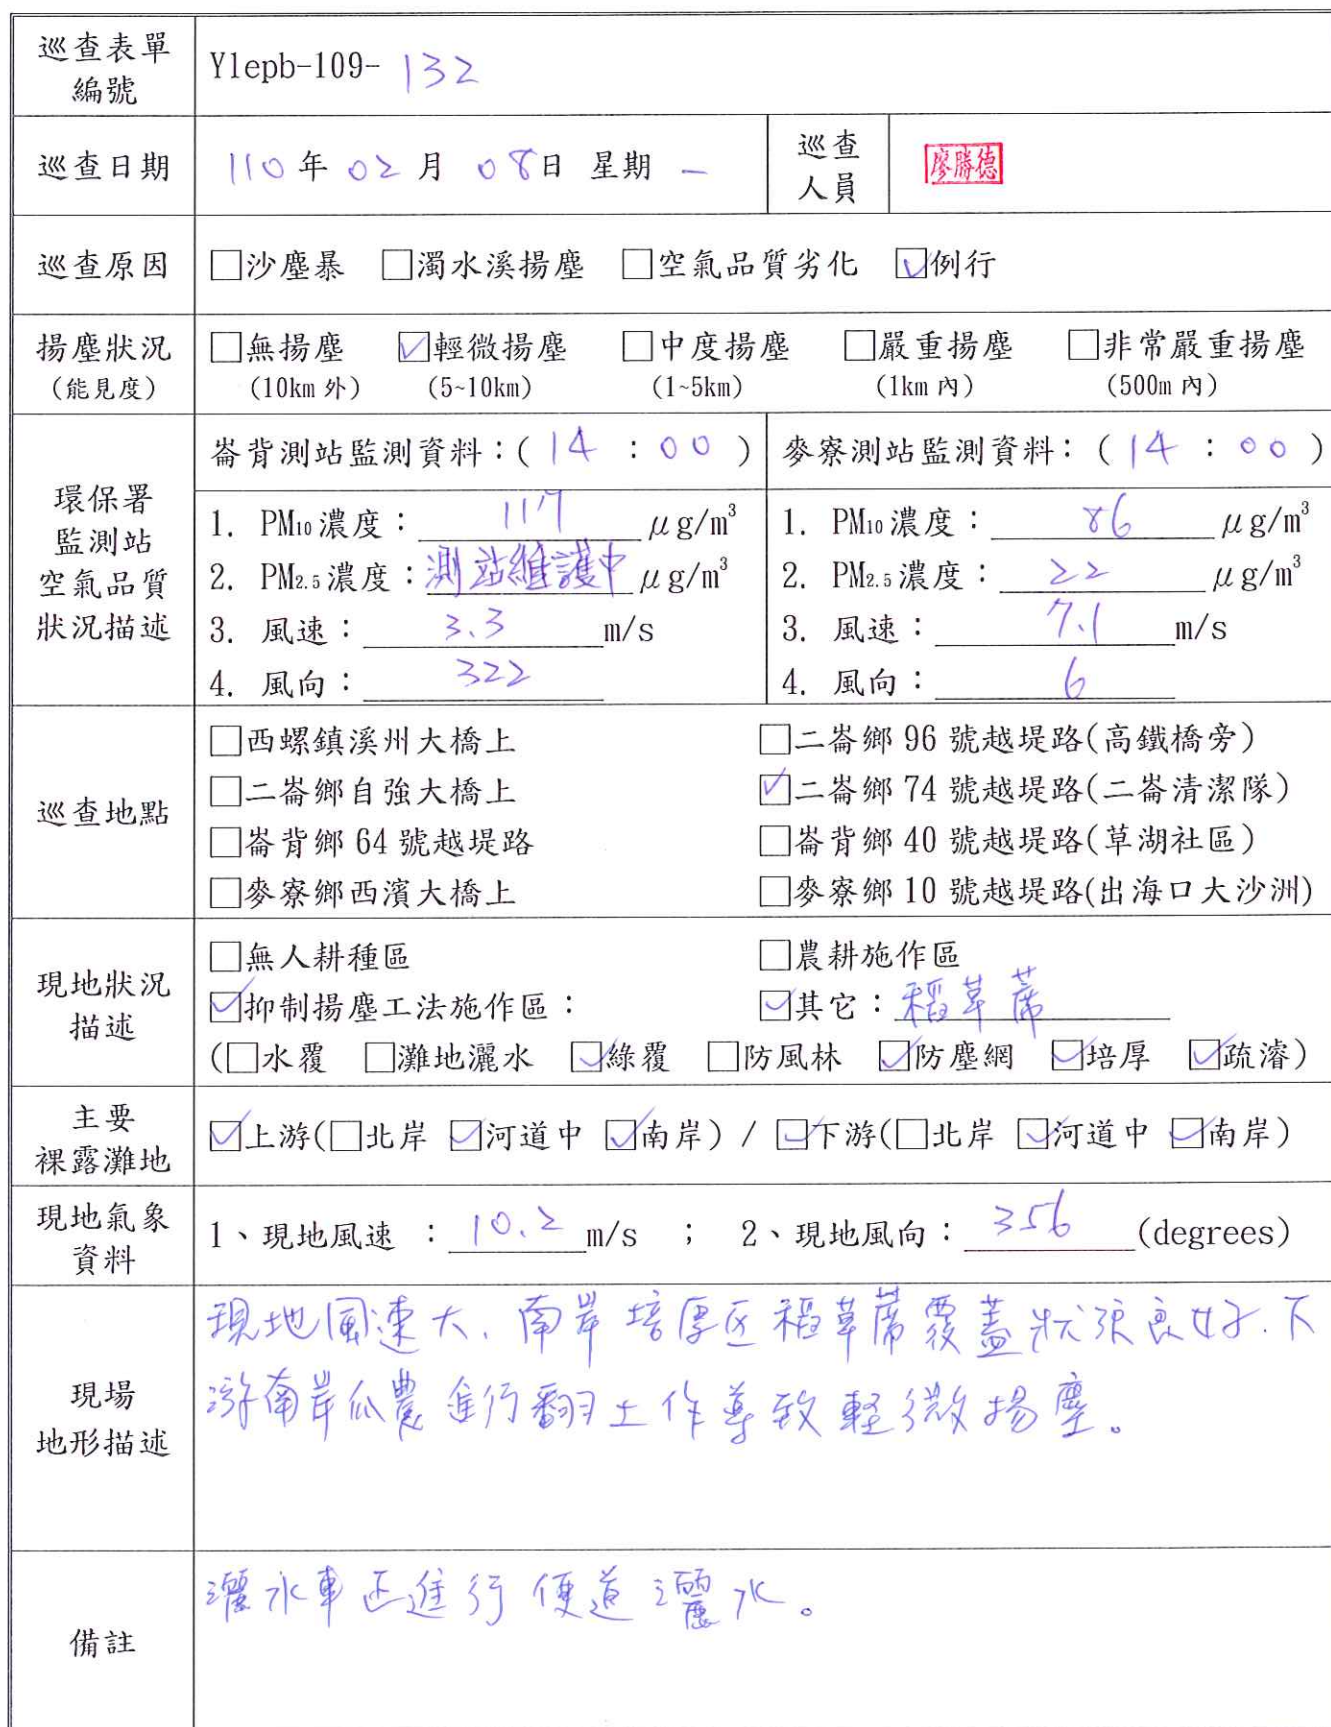 巡查表單
編號
Ylepb-109-132
巡查日期
110年02月08日 星期一
巡查
人員
廖勝德
巡查原因
□沙塵暴 □濁水溪揚塵 □空氣品質劣化 ☑例行
揚塵狀況
(能見度)
□無揚塵 ☑輕微揚塵 □中度揚塵 □嚴重揚塵 □非常嚴重揚塵
(10km 外) (5~10km) (1~5km) (1km 內) (500m 內)
環保署
監測站
空氣品質
狀況描述
崙背測站監測資料：(14：00)
1. PM10濃度：117 μg/m³
2. PM2.5濃度：測站維護中 μg/m³
3. 風速：3.3 m/s
4. 風向：322
麥寮測站監測資料：(14：00)
1. PM10濃度：86 μg/m³
2. PM2.5濃度：22 μg/m³
3. 風速：7.1 m/s
4. 風向：6
巡查地點
□西螺鎮溪州大橋上 □二崙鄉 96 號越堤路(高鐵橋旁)
□二崙鄉自強大橋上 ☑二崙鄉 74 號越堤路(二崙清潔隊)
□崙背鄉 64 號越堤路 □崙背鄉 40 號越堤路(草湖社區)
□麥寮鄉西濱大橋上 □麥寮鄉 10 號越堤路(出海口大沙洲)
現地狀況
描述
□無人耕種區 □農耕施作區
☑抑制揚塵工法施作區： ☑其它：稻草蓆
(□水覆 □灘地灑水 ☑綠覆 □防風林 ☑防塵網 ☑培厚 ☑疏濬)
主要
裸露灘地
☑上游(□北岸 ☑河道中 ☑南岸) / ☑下游(□北岸 ☑河道中 ☑南岸)
現地氣象
資料
1、現地風速 ：10.2 m/s ； 2、現地風向：356 (degrees)
現場
地形描述
現地風速大、南岸培厚区稻草蓆覆蓋狀況良好.下
游南岸瓜農進行翻土作導致輕微揚塵。
備註
灑水車正進行便道灑水。